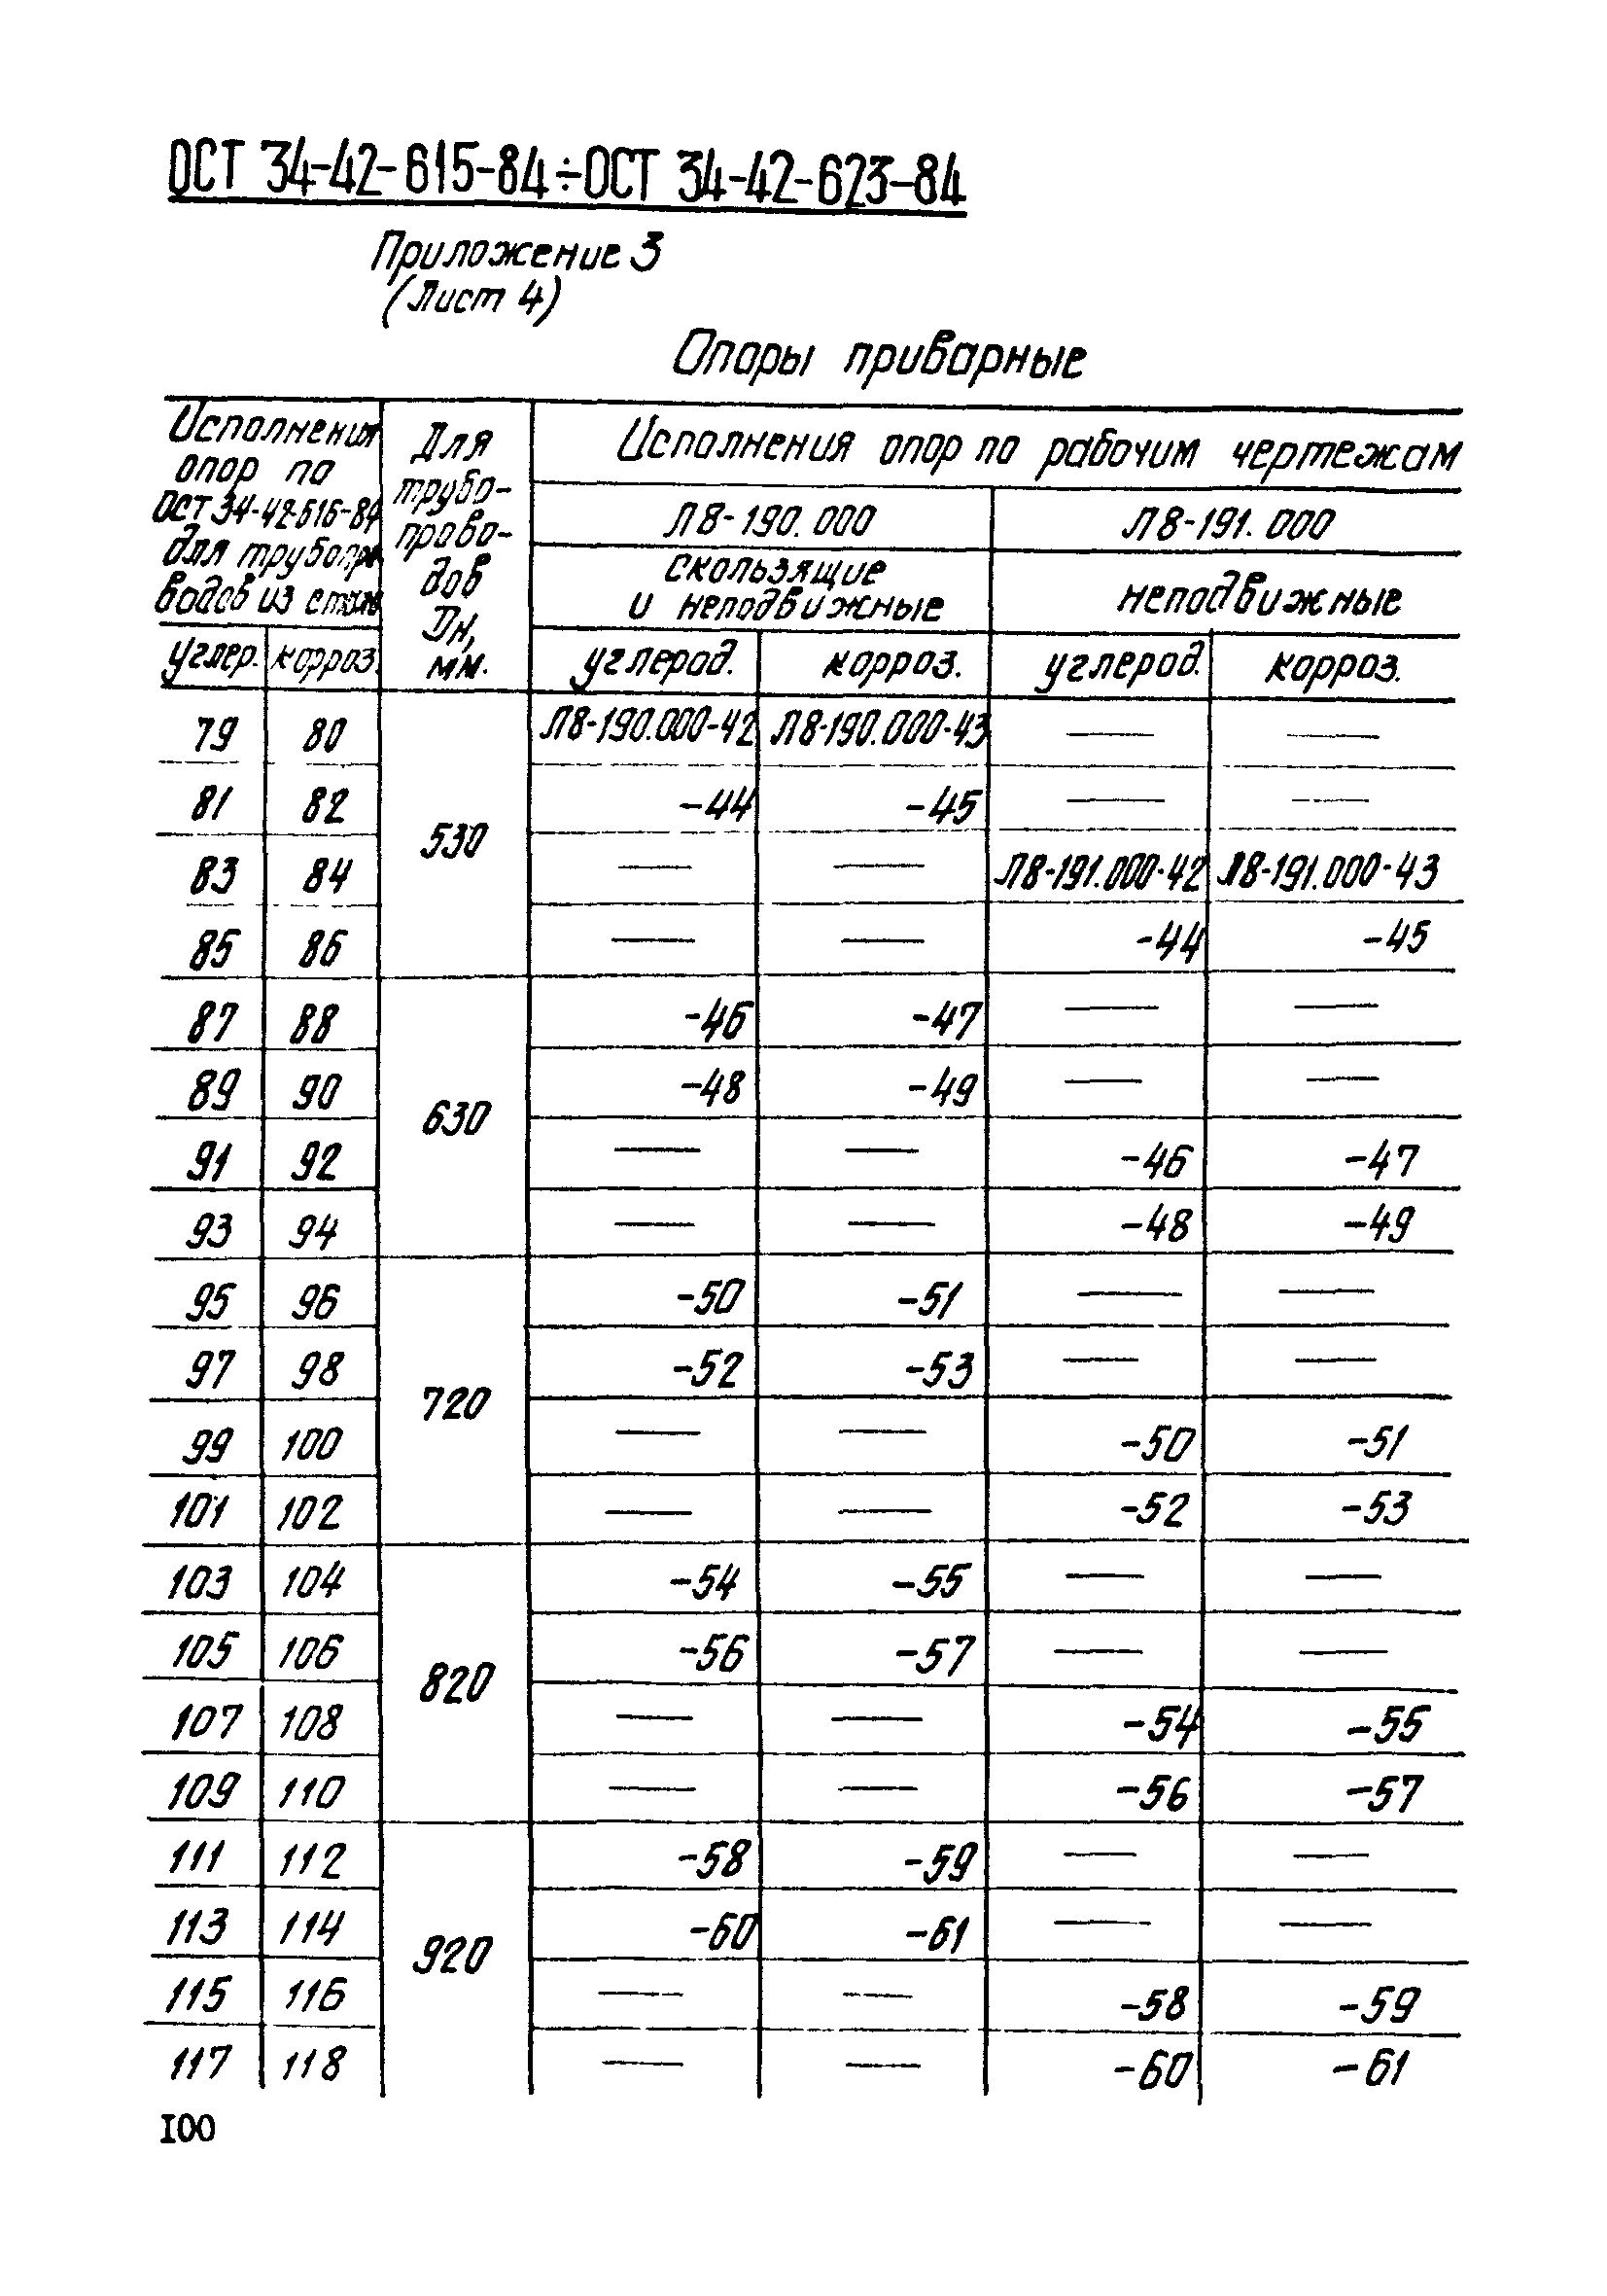 ОСТ 34-42-615-84÷ОСТ 34-42-623-84
Приложение 3
(Лист 4)
Опоры приварные
Исполнения
опор по
ОСТ 34-42-616-84
для трубопро
водов из стали
углер. корроз.
Для
трубо-
прово-
дов
Dн,
мм.
Исполнения опор по рабочим чертежам
Л8-190.000 Л8-191.000
скользящие
и неподвижные
неподвижные
углерод. корроз. углерод. корроз.
79 80 Л8-190.000-42 Л8-190.000-43 — —
81 82 -44 -45 — —
530
83 84 — — Л8-191.000-42 Л8-191.000-43
85 86 — — -44 -45
87 88 -46 -47 — —
89 90 -48 -49 — —
630
91 92 — — -46 -47
93 94 — — -48 -49
95 96 -50 -51 — —
97 98 -52 -53 — —
720
99 100 — — -50 -51
101 102 — — -52 -53
103 104 -54 -55 — —
105 106 -56 -57 — —
820
107 108 — — -54 -55
109 110 — — -56 -57
111 112 -58 -59 — —
113 114 -60 -61 — —
920
115 116 — — -58 -59
117 118 — — -60 -61
100